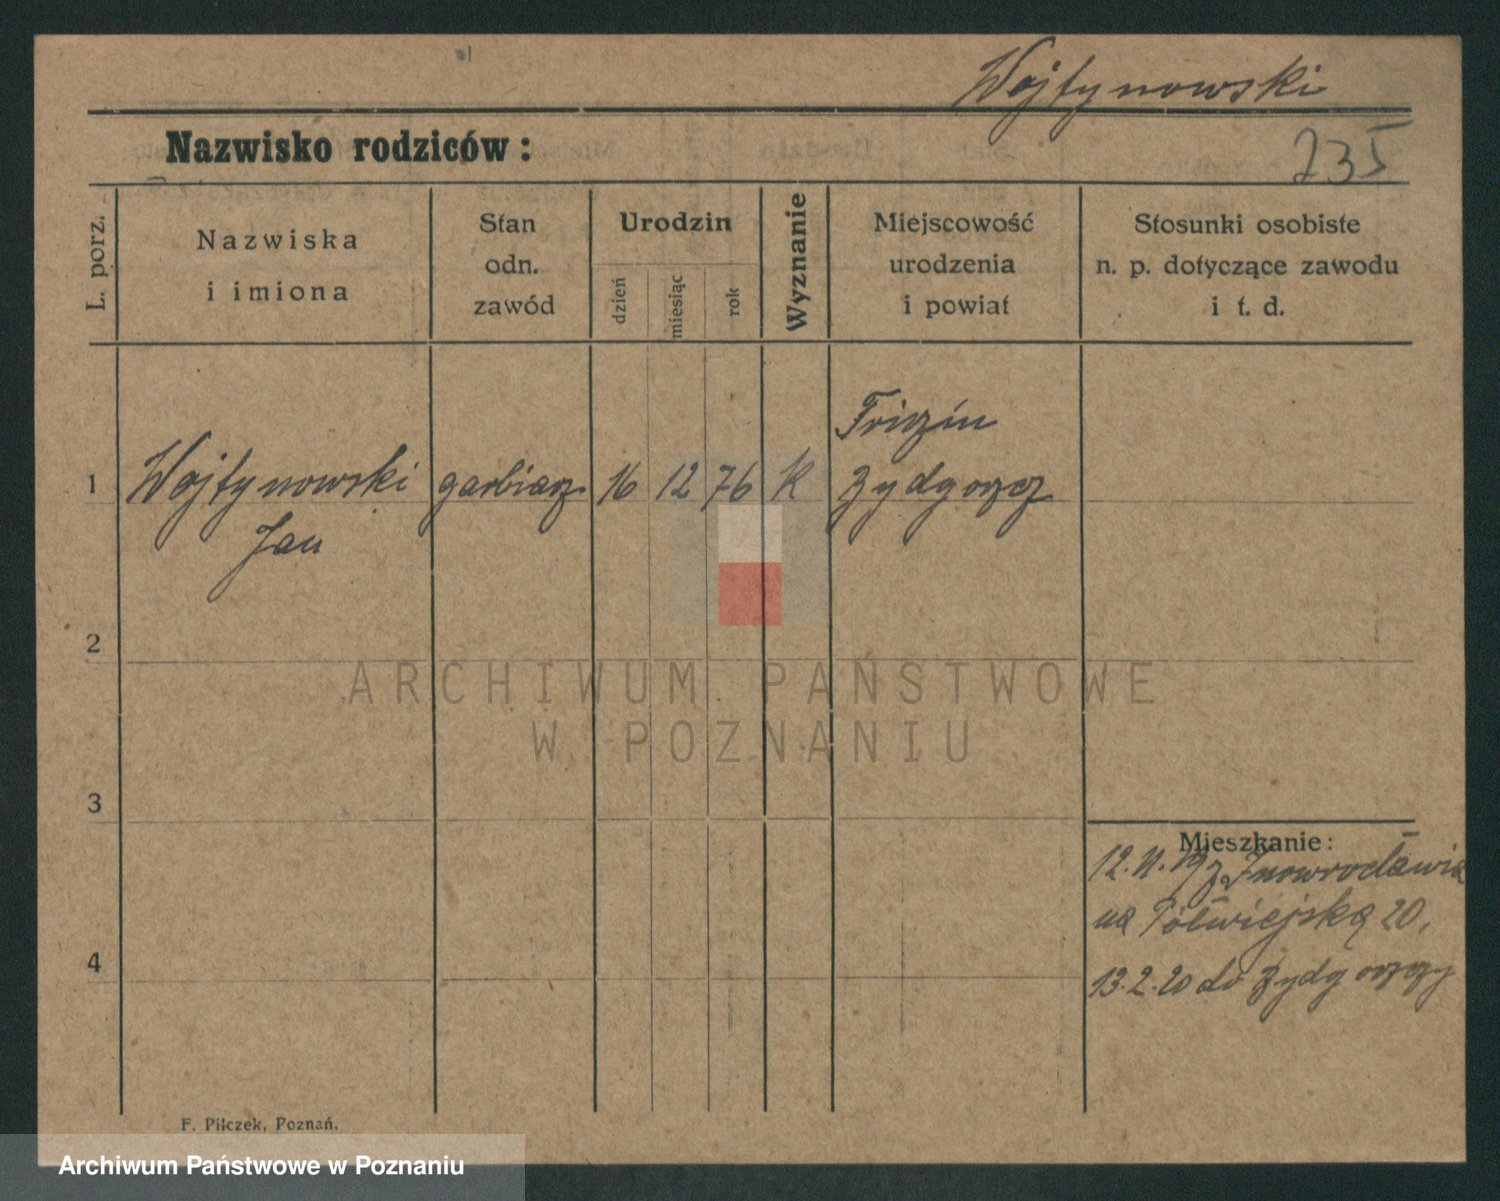 Wojtynowski
Nazwisko rodziców:
235
L. porz.
Nazwiska
i imiona
Stan
odn.
zawód
Urodzin
dzień
miesiąc
rok
Wyznanie
Miejscowość
urodzenia
i powiat
Stosunki osobiste
n. p. dotyczące zawodu
i t. d.
1
Wojtynowski
Jan
garbiarz
16
12
76
k
Bydgoszcz
2
ARCHIWUM PAŃSTWOWE
W POZNANIU
3
4
Mieszkanie:
12.11.19 z Inowrocławia
na Półwiejską 20,
13.2.20 do Bydgoszczy
F. Pilczek, Poznań.
Archiwum Państwowe w Poznaniu